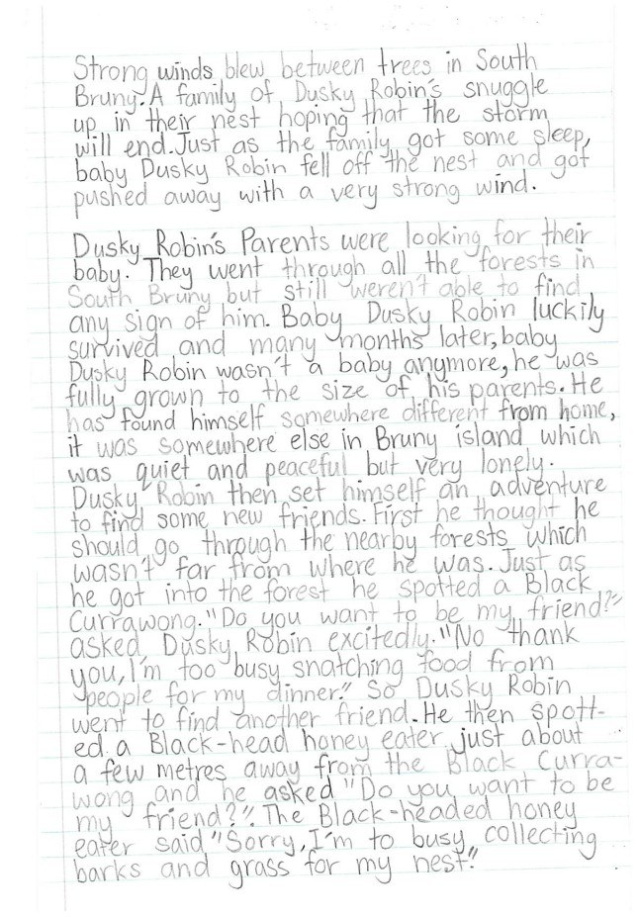 Strong winds blew between trees in South
Bruny. A family of Dusky Robin's snuggle
up in their nest hoping that the storm
will end. Just as the family got some sleep,
baby Dusky Robin fell off the nest and got
pushed away with a very strong wind.
Dusky Robin's Parents were looking for their
baby. They went through all the forests in
South Bruny but still weren't able to find
any sign of him. Baby Dusky Robin luckily
survived and many months later, baby
Dusky Robin wasn't a baby anymore, he was
fully grown to the size of his parents. He
has found himself somewhere different from home,
it was somewhere else in Bruny island which
was quiet and peaceful but very lonely.
Dusky Robin then set himself an adventure
to find some new friends. First he thought he
should go through the nearby forests which
wasn't far from where he was. Just as
he got into the forest he spotted a Black
Currawong. "Do you want to be my friend?"
asked Dusky Robin excitedly. "No thank
you, I'm too busy snatching food from
people for my dinner." So Dusky Robin
went to find another friend. He then spott-
ed a Black-head honey eater just about
a few metres away from the Black Curra-
wong and he asked "Do you want to be
my friend?". The Black-headed honey
eater said "Sorry, I'm to busy collecting
barks and grass for my nest."